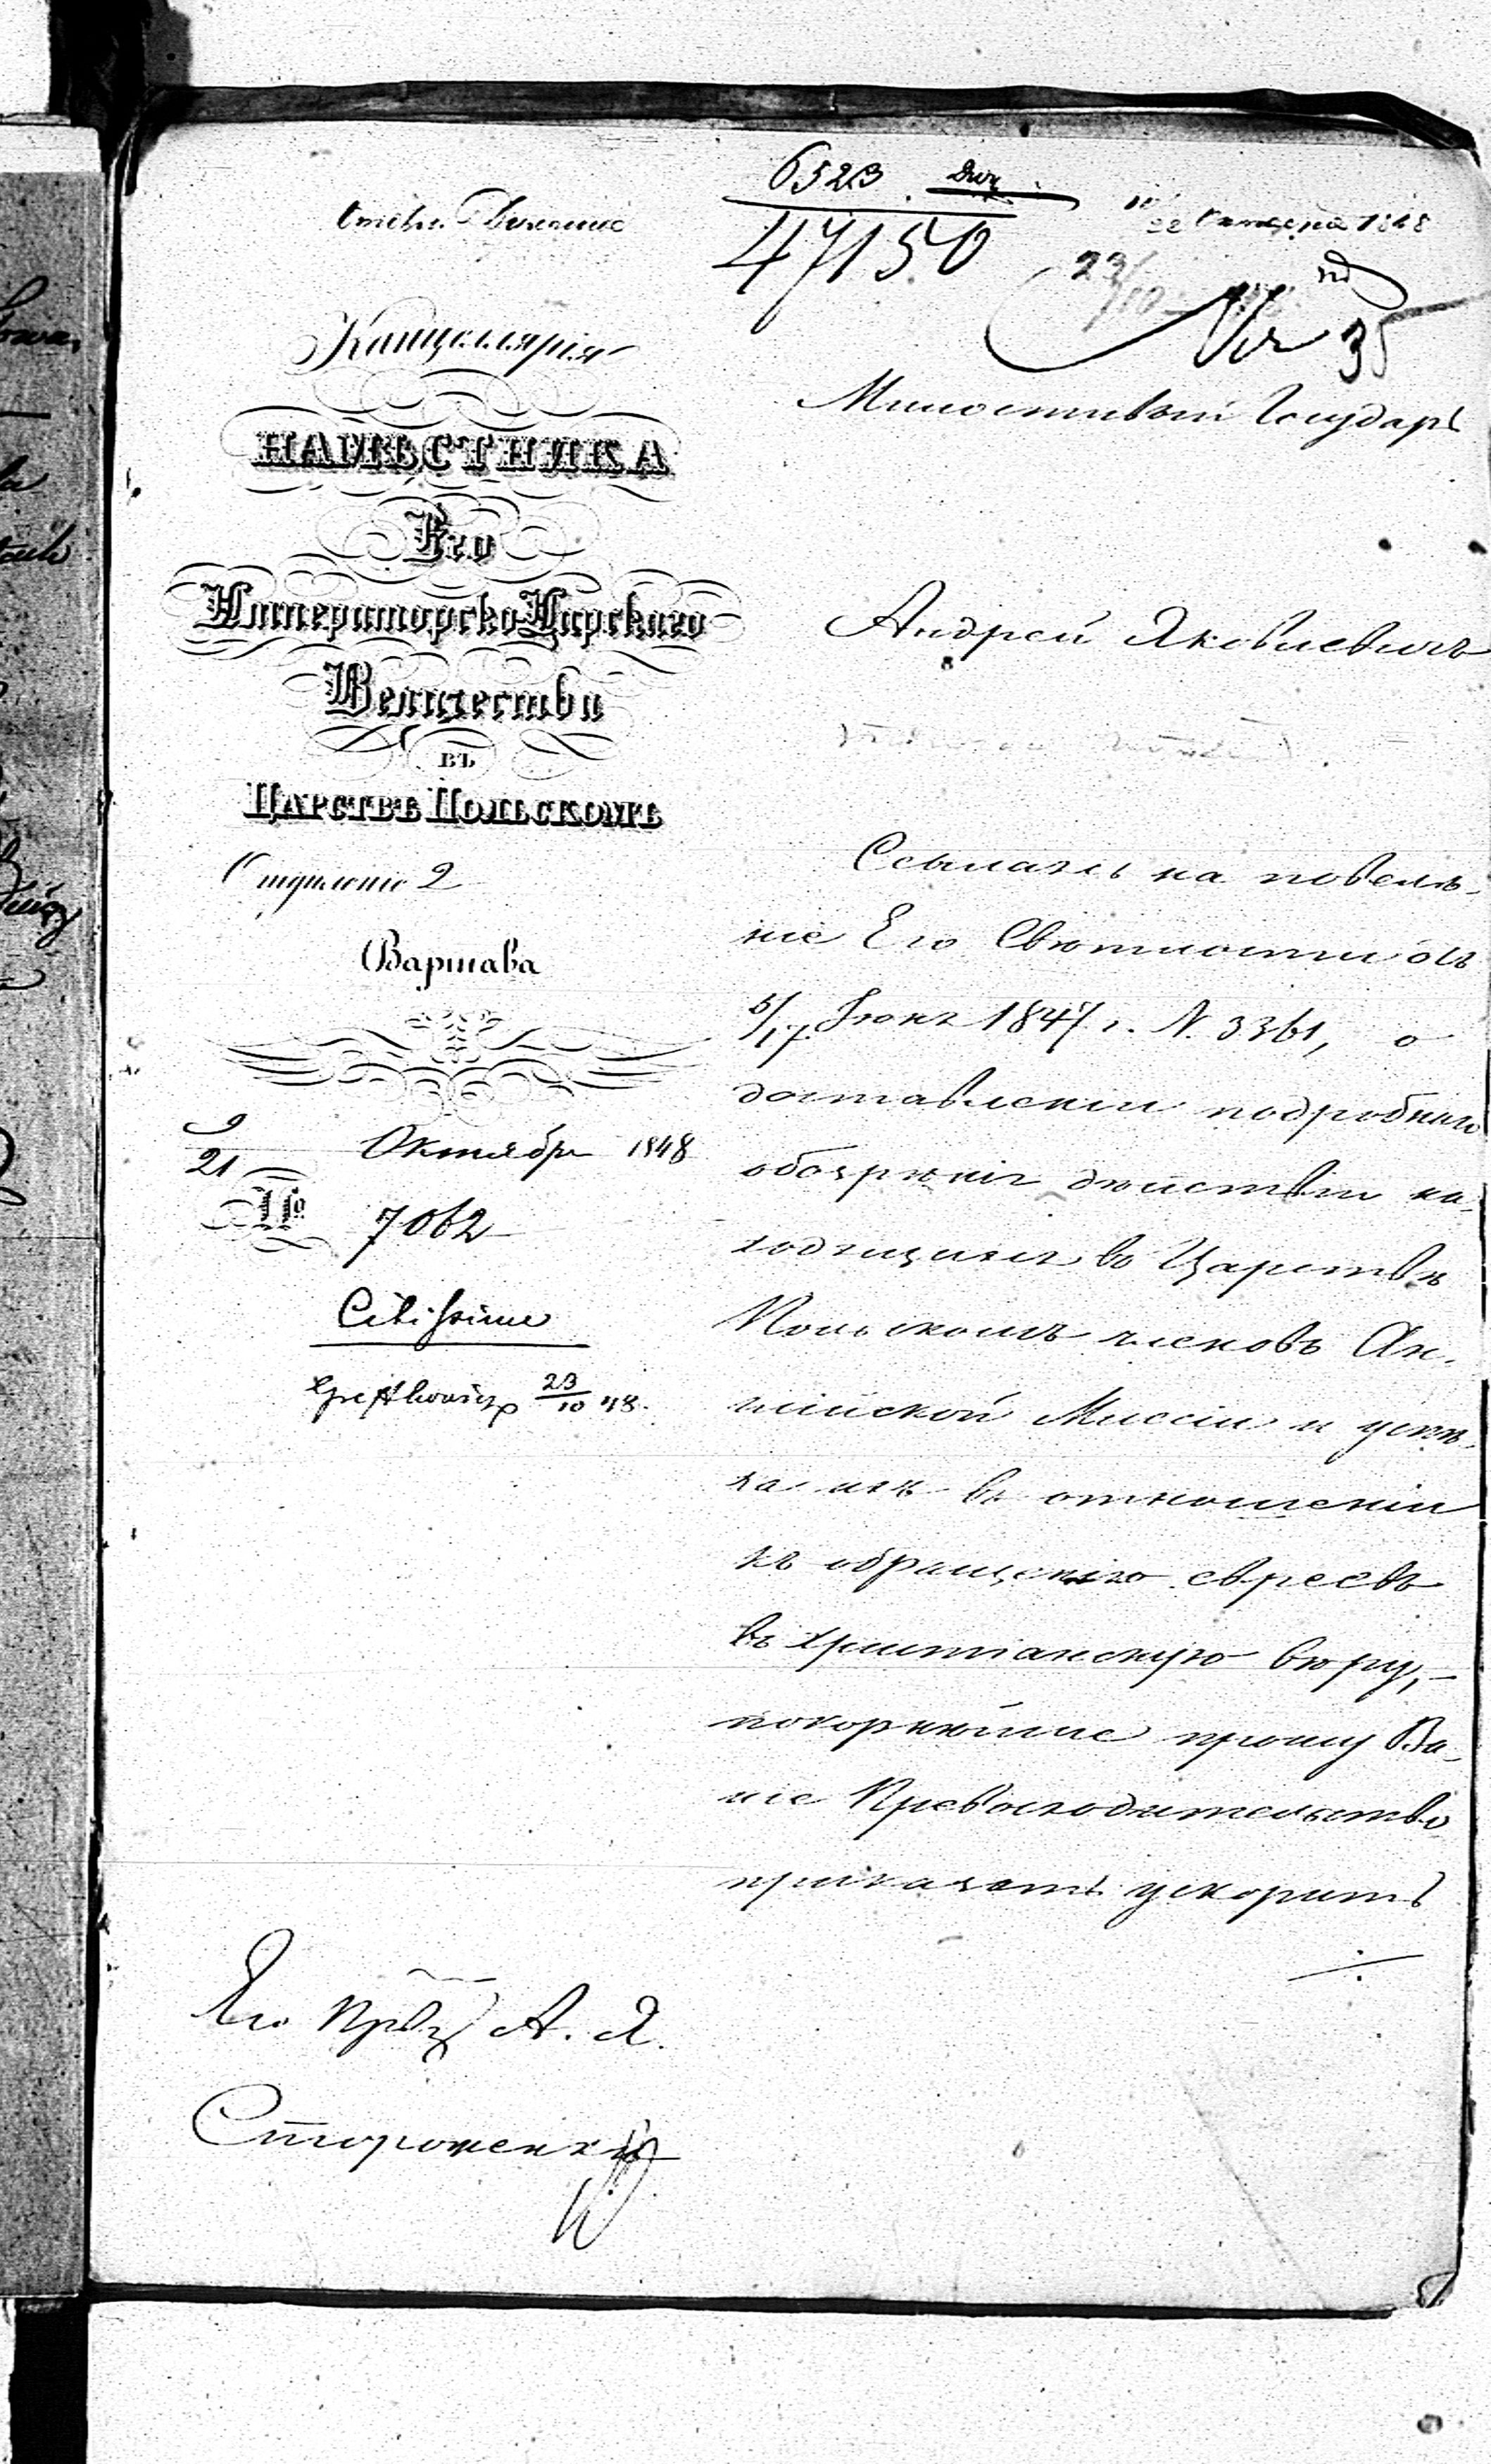 6523
47150
10/22 Октября 1848
23/10
Nr 35
Канцелярія
НАМѢСТНИКА
Его
Императорско Царскаго
Величества
въ
Царствѣ Польскомъ
Отдѣленіе 2
Варшава
9/21 Октября 1848
№ 7062
Citissime
23/10 48.
Милостивый Государь
Андрей Яковлевичъ
Ссылаясь на повелѣ-
ніе Его Свѣтлости отъ
5/17 Іюня 1847 г. N. 3361, о
доставленіи подробнаго
обозрѣнія дѣйствій на-
ходящихся въ Царствѣ
Польскомъ членовъ Ан-
глійской Миссіи и успѣ-
ха ихъ въ отношеніи
къ обращенію евреевъ
въ христіанскую вѣру,
покорнѣйше прошу Ва-
ше Превосходительство
приказать ускорить
Его Прву А. Я.
Стороженкѣ